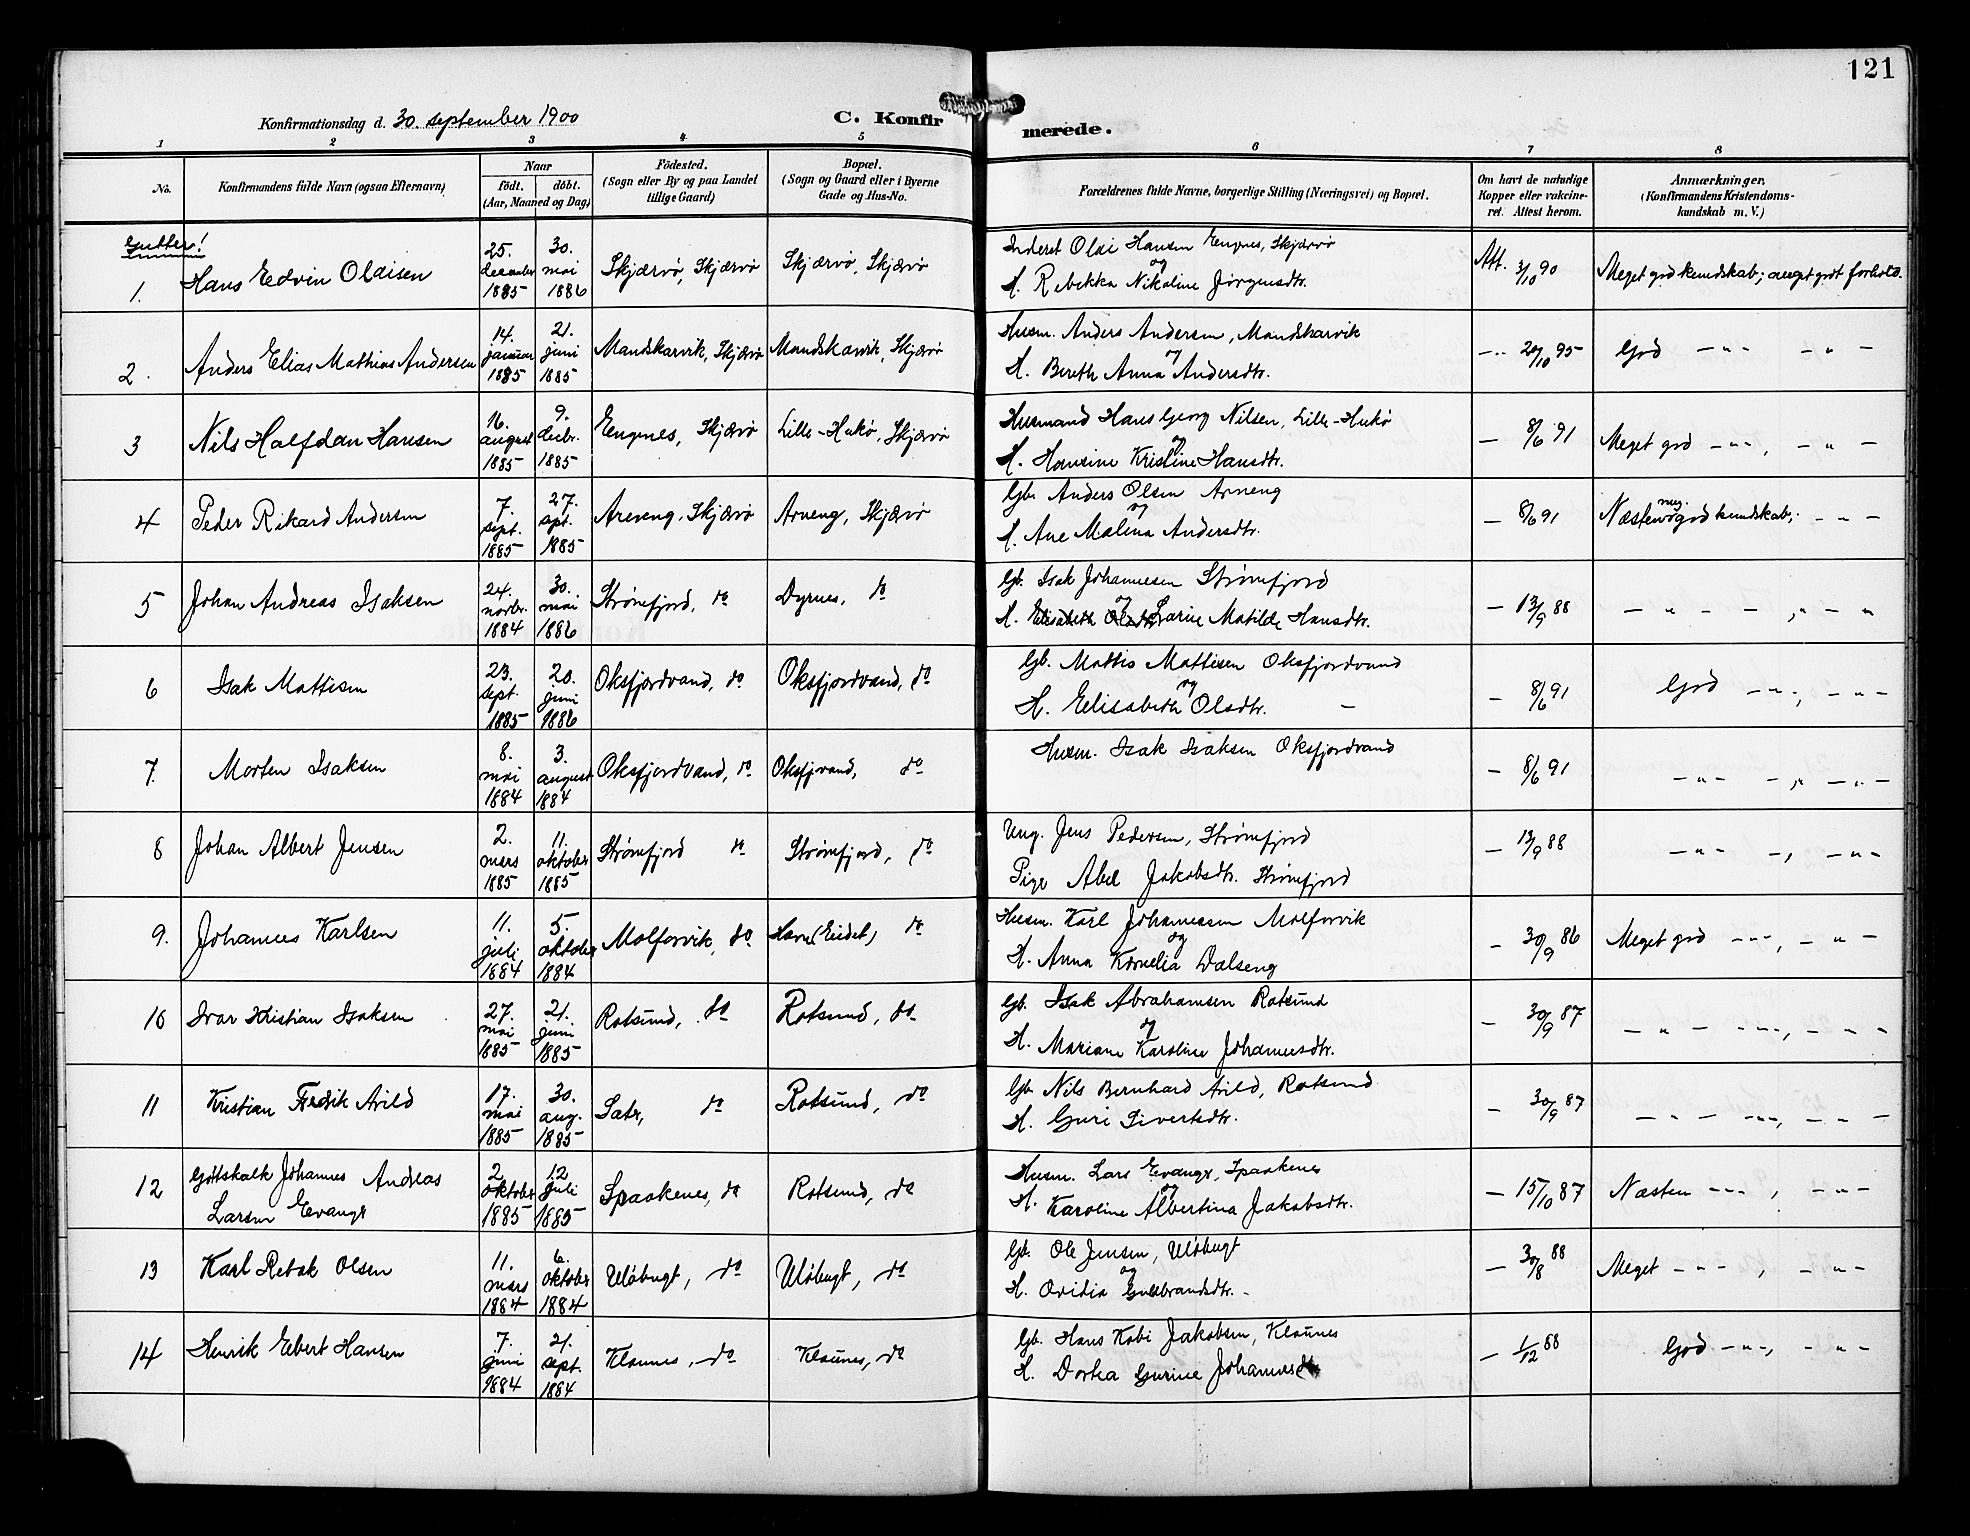 121
Konfirmationsdag d. 30. september 1900
C. Konfirmerede.
1 2 3 4 5 6 7 8
No.
Konfirmandens fulde Navn (ogsaa Efternavn)
Naar
født. døbt.
(Aar, Maaned og Dag)
Fødested.
(Sogn eller By og paa Landet
tillige Gaard)
Bopæl.
(Sogn og Gaard eller i Byerne
Gade og Hus-No.
Forældrenes fulde Navne, borgerlige Stilling (Næringsvei) og Bopæl.
Om havt de naturlige
Kopper eller vakcine-
ret. Attest herom.
Anmærkninger.
(Konfirmandens Kristendoms-
kundskab m. V.)
Gutter!
1. Hans Edvin Olaisen
25. december 1885
30. mai 1886
Skjærvø, Skjærvø
Skjærvø, Skjærvø
Inderst Olai Hansen Engnes, Skjærvø
og
H. Rebekka Nikoline Jørgensdtr.
Att. 3/10 90
Meget god kundskab; meget godt forhold.
2. Anders Elias Mathias Andersen
14. januar 1885
21. juni 1885
Mandskarvik, Skjærvø
Mandskarvik, Skjærvø
Husm. Anders Andersen, Mandskarvik
og
H. Bereth Anna Andersdtr.
-"- 20/10 95
God -"- -"-
3 Nils Halfdan Hansen
16. august 1885
9. decbr. 1885
Engnes, Skjærvø
Lille-Hukø, Skjærvø
Husmand Hans Georg Nilsen, Lille-Hukø
og
H. Hansine Kristine Hansdtr.
— 8/6 91
Meget god -"-, -"-
4 Peder Rikard Andersen
7. sept. 1885
27. spt. 1885
Arneng, Skjærvø
Arneng, Skjærvø
Gb. Anders Olsen Arneng
og
H. Ane Malena Andersdtr.
— 8/6 91
Næsten meg. god kundskab; -"-
5 Johan Andreas Isaksen
24. novbr. 1884
30. mai 1886
Strømfjord, do
Dyrnes, do
Gb. Isak Johannesen Strømfjord
og
H. Elisabeth Olsdtr Larine Matilde Hansdtr.
— 13/9 88
-"- -, -"-
6 Isak Mattisen
23. sept. 1885
20. juni 1886
Oksfjordvand, do
Oksfjordvand, do
Gb. Mattis Mattisen Oksfjordvand
og
H. Elisabeth Olsdtr. —
— 8/6 91
God -"-, -"-
7. Morten Isaksen
8. mai 1884
3. august 1884
Oksfjordvand, do
Oksfjvand, do
Husm. Isak Isaksen Oksfjordvand
— 8/6 91
-"- -, -"-
8 Johan Albert Jensen
2. mars 1885
11. oktober 1885
Strømfjord do
Strømfjord, do
Ung. Jens Pedersen, Strømfjord
Pige Abel Jakobsdtr. Strømfjord
— 13/9 88
-"- -, -"-
9. Johannes Karlsen
11. juli 1884
5. oktober 1884
Molforvik, do
Havn (Eidet) do
Husm. Karl Johannessen Molforvik
og
H. Anna Kornelia Dalseng
— 30/9 86
Meget god -"-, -"-
10 Ivar Kristian Isaksen
27. mai 1885
21. juni 1885
Rotsund, do
Rotsund, do
Gb. Isak Abrahamsen Rotsund
og
H. Mariane Karoline Johannesdtr.
— 30/9 87
-"- -"-, -"-
11 Kristian Fredrik Arild
17. mai 1885
30. aug. 1885
do
Rotsund, do
Gb. Nils Bernhard Arild, Rotsund
H. Guri Sivertsdtr.
— 30/9 87
-"- -"-, -"-
12 Gottskalk Johannes Andreas
Larsen
2. oktober 1885
12. juli 1885
Spaakenes, do
Rotsund, do
Husm. Lars Spaakenes
og
H. Karoline Albertina Jakobsdtr.
— 15/10 87
Næsten -"-, -"-
13 Karl Olsen
11. mars 1884
6. oktober 1884
Uløbugt, do
Uløbugt, do
Gb. Ole Jensen, Uløbugt
og
H. Ovidia Guldbrandsdtr. -
— 30/8 88
Meget -"-, -"-
14 Henrik Ebert Hansen
7. juni 1884
21. sept. 1884
Klaunes, do
Klaunes, do
Gb. Hans Kobi Jakobsen, Klaunes
H. Dortea Gurine Johannesdtr
— 1/12 88
God -"-, -"-